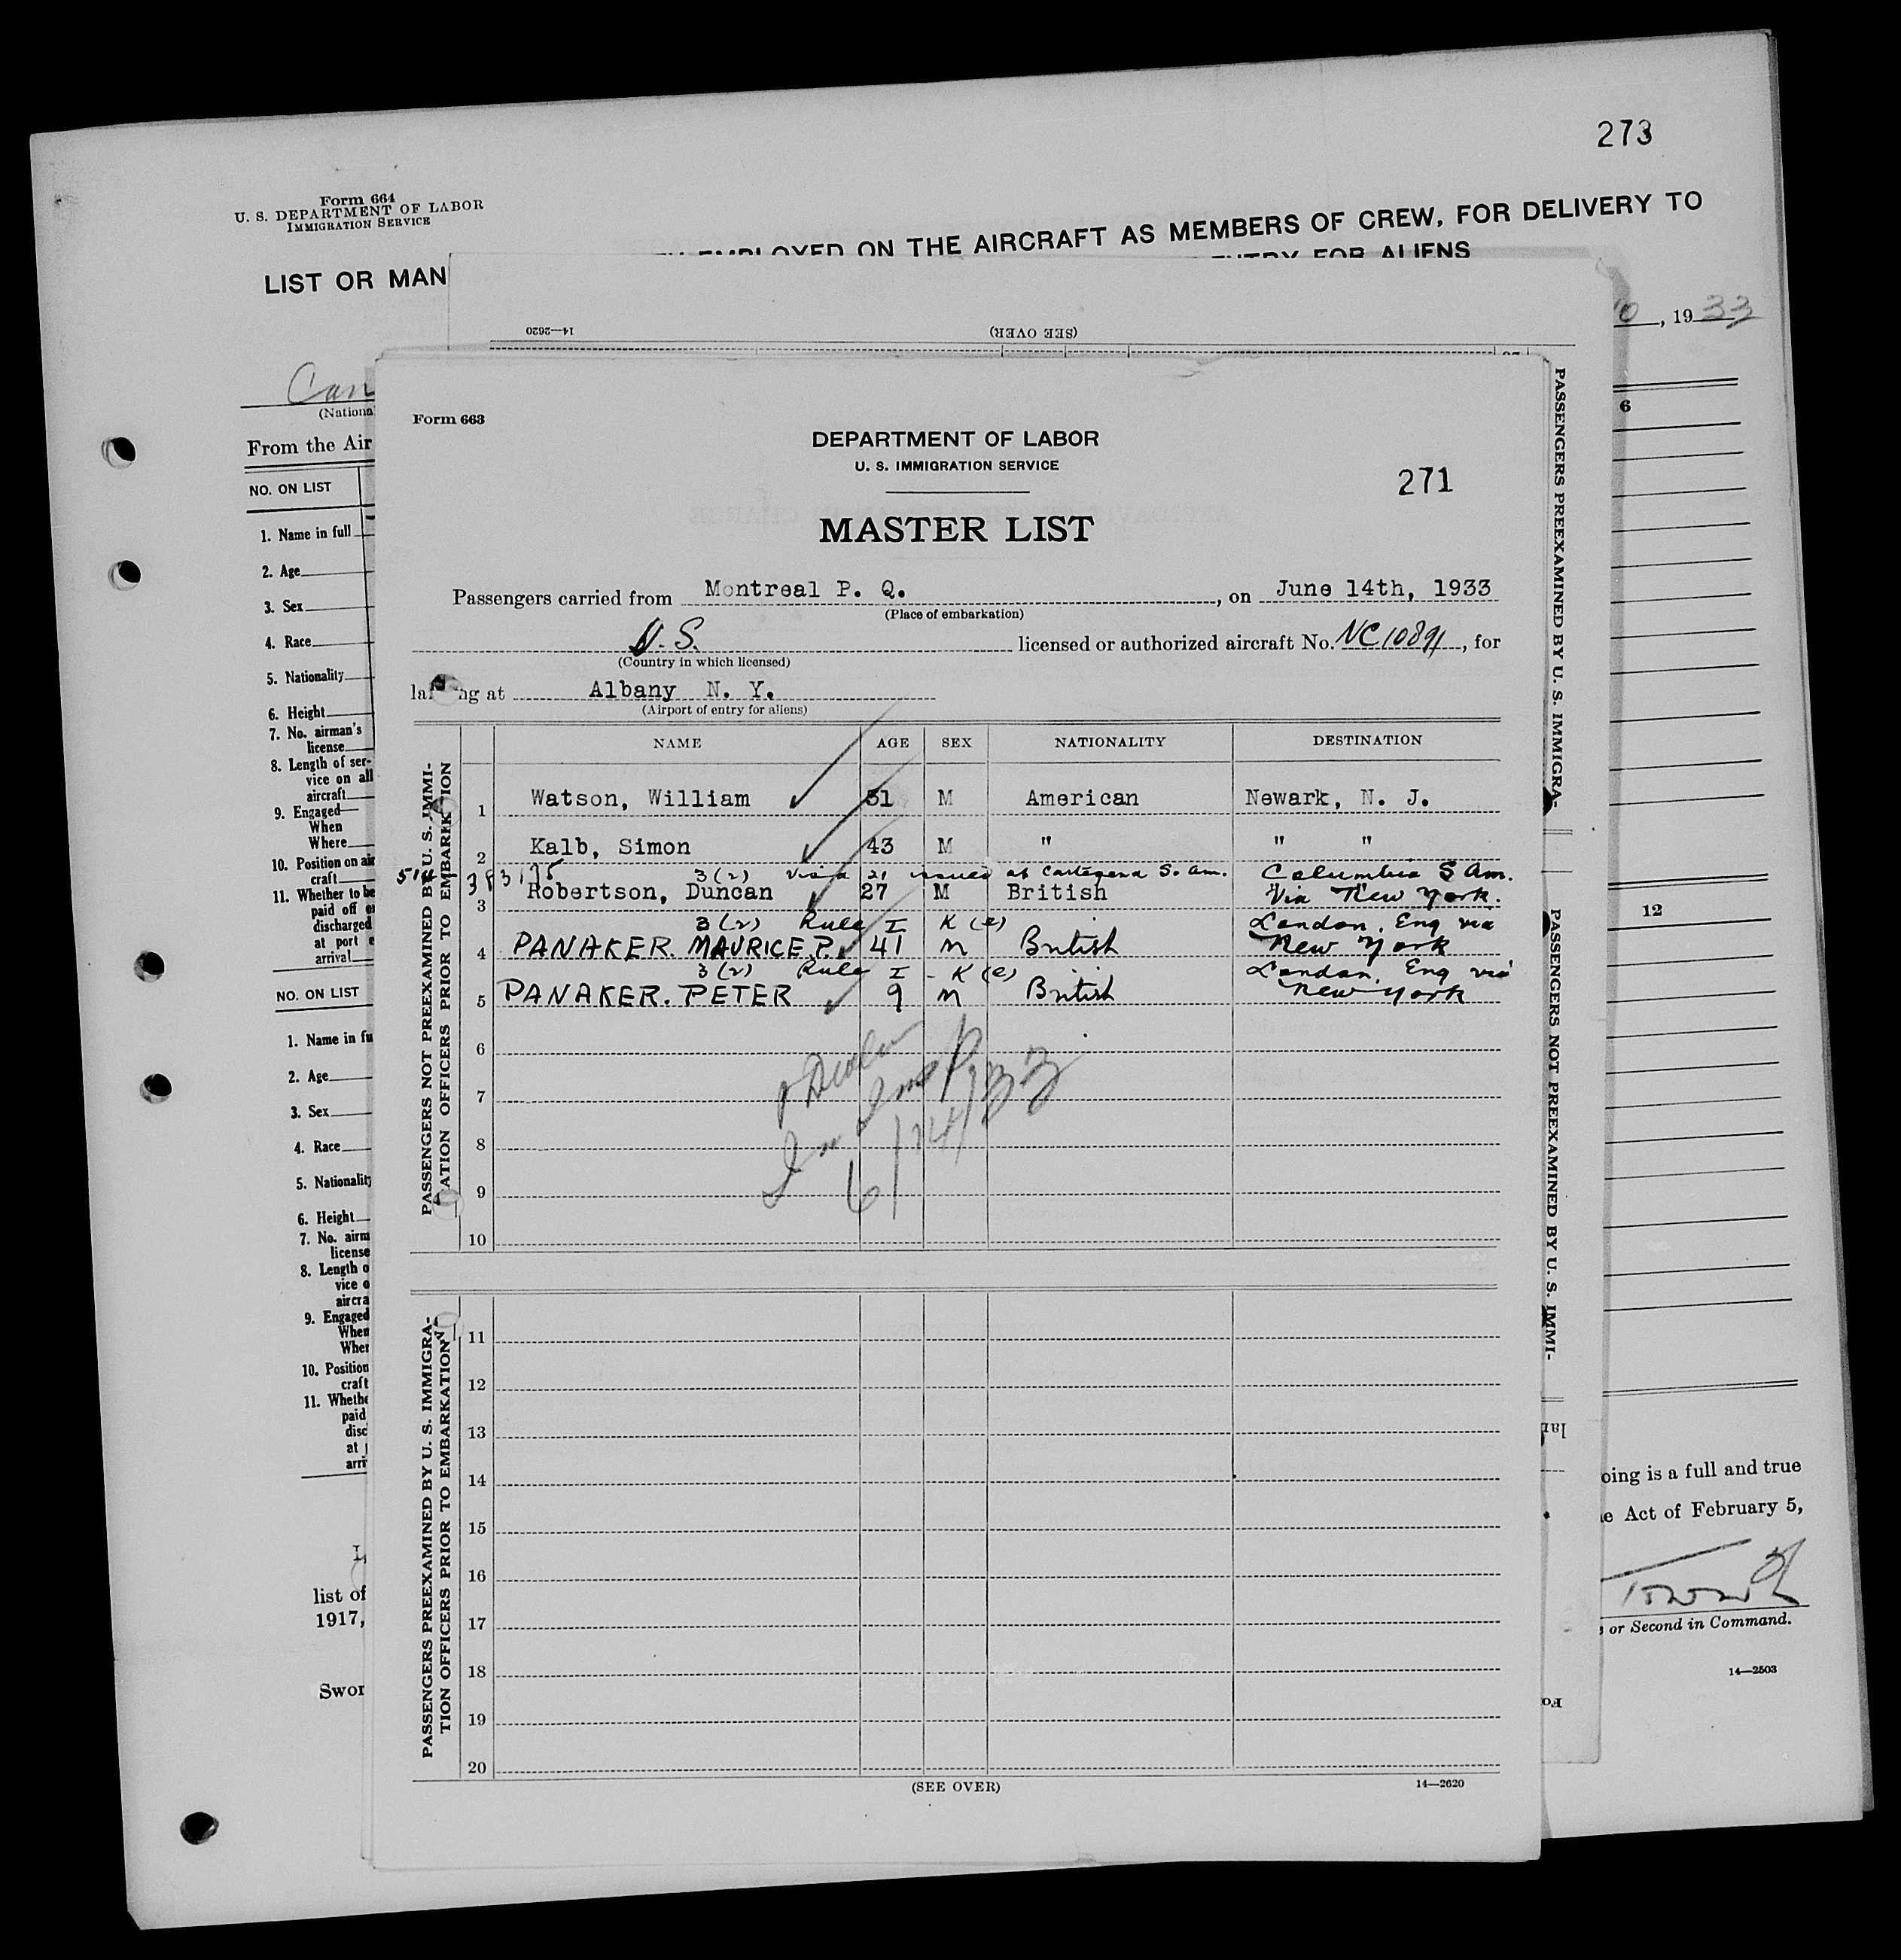 273
Form 664
U. S. DEPARTMENT OF LABOR
IMMIGRATION SERVICE
LIST OR MAN EMPLOYED ON THE AIRCRAFT AS MEMBERS OF CREW, FOR DELIVERY TO
ENTRY FOR ALIENS
, 19 33
14—2620
(SEE OVER)
Can
(Nationa
From the Air
NO. ON LIST
1. Name in full
2. Age
3. Sex
4. Race
5. Nationality
6. Height
7. No. airman's
license
8. Length of ser-
vice on all
aircraft
9. Engaged—
When
Where
10. Position on air
craft
11. Whether to be
paid off or
discharged
at port
arrival
NO. ON LIST
1. Name in fu
2. Age
3. Sex
4. Race
5. Nationality
6. Height
7. No. airm
license
8. Length o
vice o
aircra
9. Engaged
When
Wher
10. Position
craft
11. Whethe
paid
disc
at
arri
list of
1917,
Swor
Form 663
DEPARTMENT OF LABOR
U. S. IMMIGRATION SERVICE
271
MASTER LIST
Passengers carried from Montreal P. Q., on June 14th, 1933
(Place of embarkation)
U. S. licensed or authorized aircraft No. NC10891, for
(Country in which licensed)
la ng at Albany N. Y.
(Airport of entry for aliens)
NAME AGE SEX NATIONALITY DESTINATION
PASSENGERS NOT PREEXAMINED BY U. S. IMMI-
GRATION OFFICERS PRIOR TO EMBARKATION
1 Watson, William 31 M American Newark, N. J.
2 Kalb, Simon 43 M " " "
383175 3(2) Visa 21 issued at Cartegena So. Am. Columbia S Am.
3 Robertson, Duncan 27 M British Via New York.
3(2) Rule I K(e) London, Eng via
4 PANAKER. MAURICE P. 41 M British New York
3(2) Rule I - K(e) London, Eng via
5 PANAKER. PETER 9 M British New York
6
7
8
9
10
6/14/33
PASSENGERS PREEXAMINED BY U. S. IMMIGRA-
TION OFFICERS PRIOR TO EMBARKATION
11
12
13
14
15
16
17
18
19
20
(SEE OVER)
14—2620
PASSENGERS PREEXAMINED BY U. S. IMMIGRA-
PASSENGERS NOT PREEXAMINED BY U. S. IMMI-
6
12
oing is a full and true
e Act of February 5,
or Second in Command.
14—2503